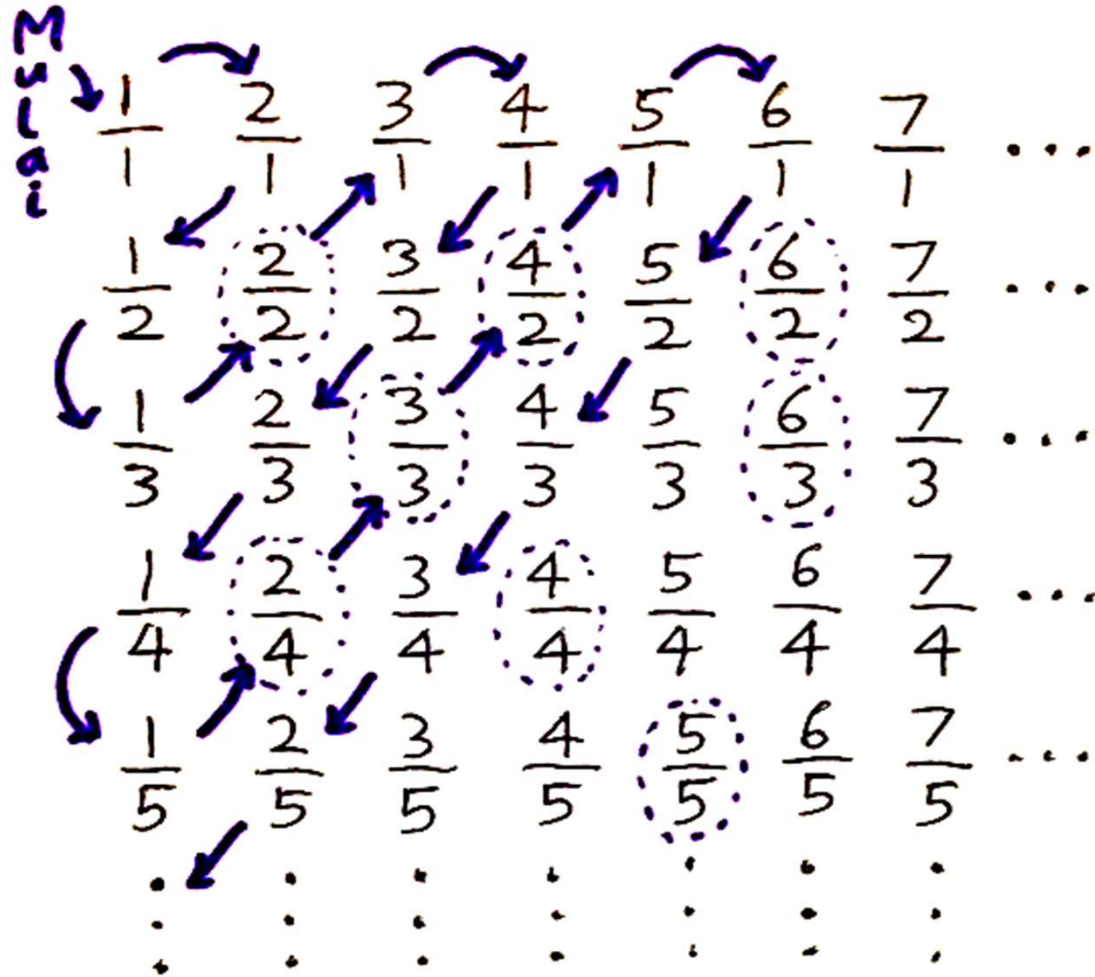 Mulai
1/1 2/1 3/1 4/1 5/1 6/1 7/1 ...
1/2 2/2 3/2 4/2 5/2 6/2 7/2 ...
1/3 2/3 3/3 4/3 5/3 6/3 7/3 ...
1/4 2/4 3/4 4/4 5/4 6/4 7/4 ...
1/5 2/5 3/5 4/5 5/5 6/5 7/5 ...